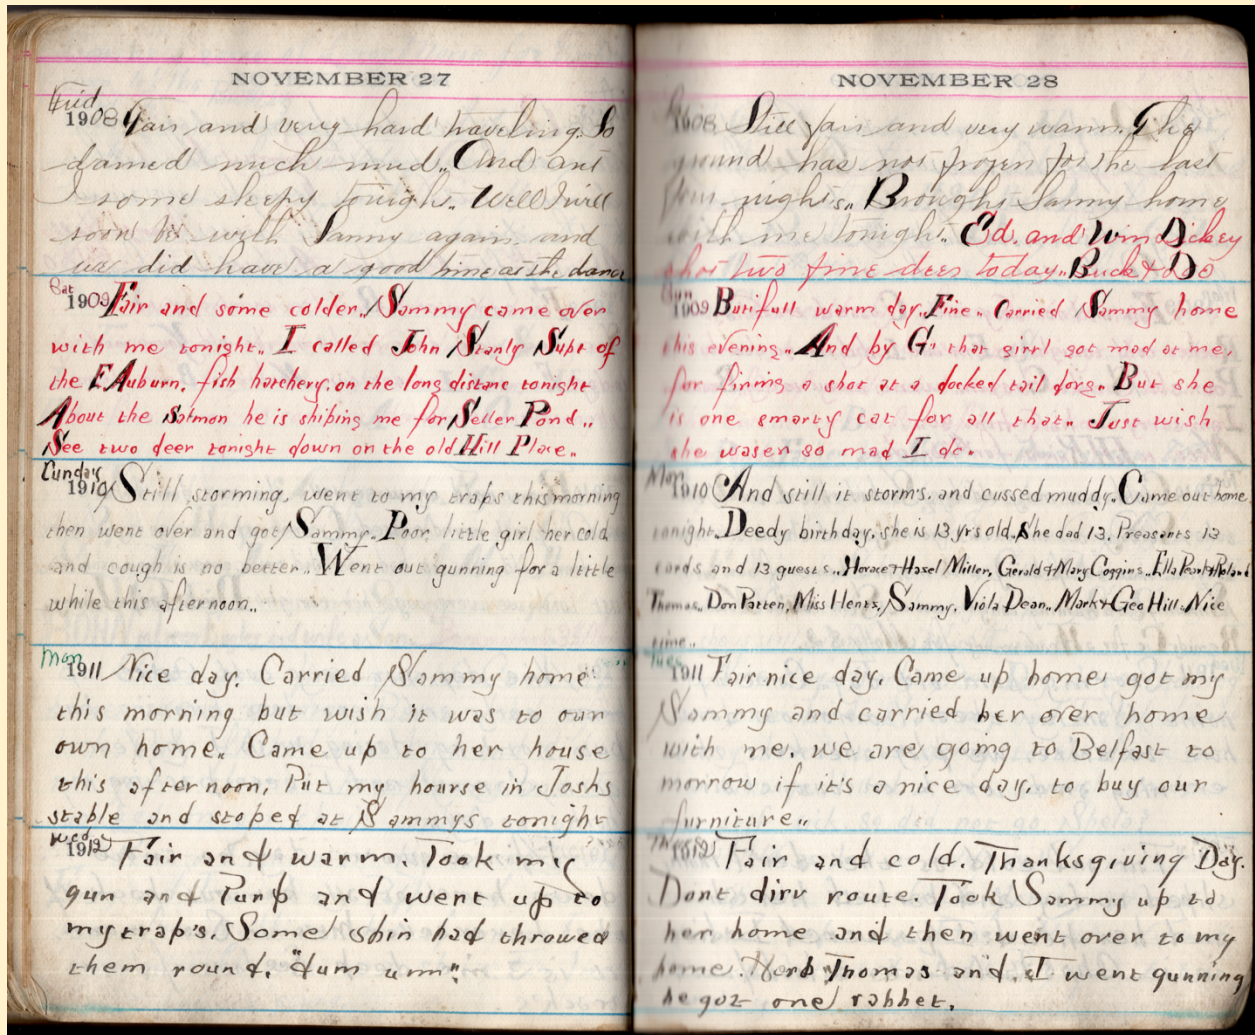 NOVEMBER 27
Frid
1908 Fair and very hard traveling. So
darned much mud.. And ant
I some sleepy tonight.. Well I will
soon be with Sammy again and
we did have a good time at the dance
Sat
1909 Fair and some colder.. Sammy came over
with me tonight.. I called John Stanly Supt of
the E Auburn, fish hatchery, on the long distanc tonight
About the Salmon he is shiping me for Seller Pond..
See two deer tonight down on the old Hill Place..
Sunday
1910 Still storming, went to my traps this morning
then went over and got Sammy.. Poor little girl her cold
and cough is no better.. Went out gunning for a little
while this afternoon..
Mon
1911 Nice day. Carried Sammy home
this morning but wish it was to our
own home.. Came up to her house
this afternoon, Put my hourse in Joshs
stable and stoped at Sammys tonight
Wed
1912 Fair and warm. Took my
gun and Punp and went up to
my trap's. Some had throwed
them round, "dum um"
NOVEMBER 28
1908 Still fair and very warm. The
ground has not frozen for the last
four nights.. Brought Sammy home
with me tonight.. Ed. and Win Dickey
shot two fine deer today.. Buck & Do
Sun
1909 Butifull warm day. Fine.. Carried Sammy home
this evening.. And by G' that girrl got mad at me,
for firring a shot at a docked tail dorg.. But she
is one smarty cat for all that.. Just wish
she wasen so mad I do..
Mon
1910 And still it storm's, and cussed muddy. Came out home
tonight. Deedy birthday, she is 13 yrs old. She dad 13, Preasants 13
cards and 13 guests.. Horace & Hazel Miller, Gerald & Mary Coggins.. Ella Pearl & Roland
Thomas.. Don Patten, Miss Hents, Sammy, Viola Dean.. Mark & Geo Hill.. Nice
time..
Tues
1911 Fair nice day. Came up home got my
Sammy and carried her over home
with me. we are going to Belfast to
morrow if it's a nice day, to buy our
furniture..
Thurs
1912 Fair and cold. Thanksgiving Day.
Dont dirv route. Took Sammy up to
her home and then went over to my
home. Herb Thomas and I went gunning
he got one rabbet.